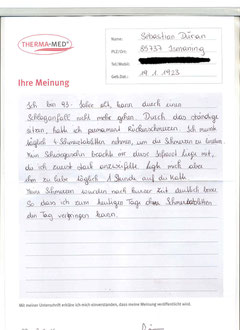 THERMA-MED®
Name: Sebastian Dünan
PLZ/Ort: 85737 Ismaning
Tel/Mobil:
Geb.Dat.: 19.1.1923
Ihre Meinung
Ich bin 93 Jahre alt, kann durch einen
Schlaganfall nicht mehr gehen. Durch das ständige
sitzen, hatte ich permanent Rückenschmerzen. Ich musste
täglich 4 Schmerztabletten nehmen, um die Schmerzen zu
Mein Schwiegersohn brachte mir diese Infrarot Liege mit,
die ich zuerst stark anzweifelte. Ich aber
ihm zu liebe täglich 1 Stunde auf die Matte
Meine Schmerzen wurden nach kurzer Zeit deutlich
So dass ich zum heutigen Tage ohne Schmerztabletten
den Tag verbringen kann.
Mit meiner Unterschrift erkläre ich mich einverstanden, dass meine Meinung veröffentlicht wird.